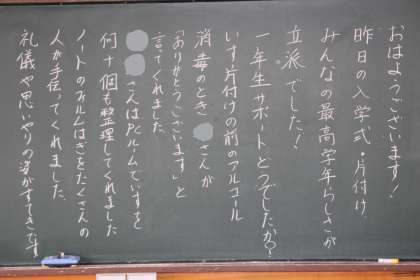 おはようございます！
昨日の入学式・片付け、
みんなの最高学年らしさが
立派でした！
一年生サポートどうでしたか？
いす片付けの前のアルコール
消毒のとき さんが
「ありがとうございます」と
言ってくれました。
さんはPCルームでいすを
何十個も整理してくれました
ノートのフィルムはぎをたくさんの
人が手伝ってくれました、
礼儀や思いやりの姿がすてきです